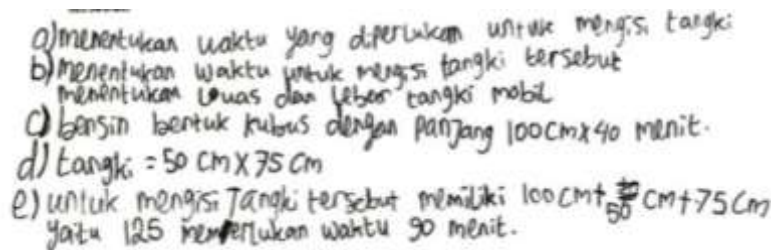 a) menentukan waktu yang diperlukan untuk mengisi tangki
b) menentukan waktu untuk mengisi tangki tersebut
menentukan luas dan lebar tangki mobil
c) bensin bentuk kubus dengan panjang 100 cm x 40 menit.
d) tangki = 50 cm x 75 cm
e) untuk mengisi Tangki tersebut memiliki 100 cm + 50 cm + 75 cm
yaitu 125 memerlukan waktu 90 menit.